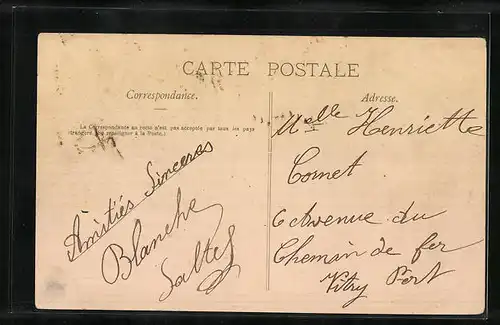 CARTE POSTALE
Correspondance.
La Correspondance au recto n'est pas acceptée par tous les pays
étrangers. (Se renseigner à la Poste.)
Amitiés Sincères
Blanche
Adresse.
Melle Henriette
Cornet
6 Avenue du
Chemin de fer
Vitry Port